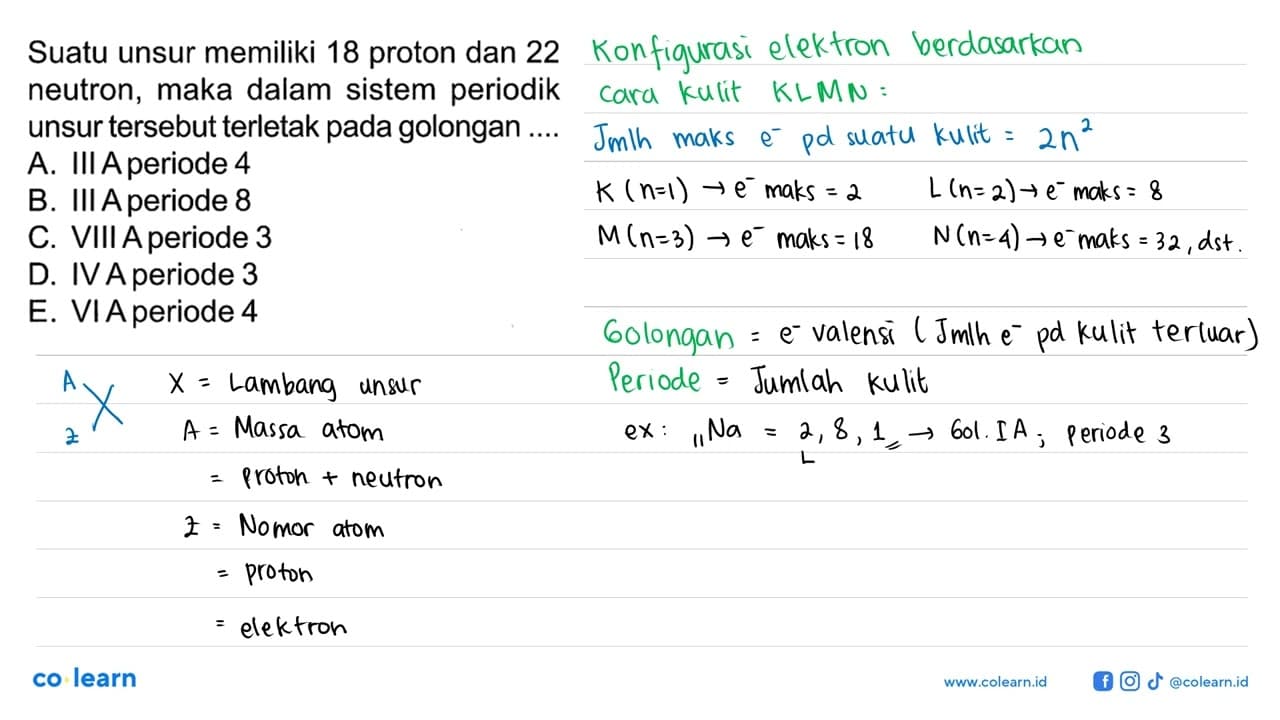 Suatu unsur memiliki 18 proton dan 22
neutron, maka dalam sistem periodik
unsur tersebut terletak pada golongan ....
A. III A periode 4
B. III A periode 8
C. VIII A periode 3
D. IV A periode 3
E. VI A periode 4
Konfigurasi elektron berdasarkan
cara kulit KLMN :
Jmlh maks e⁻ pd suatu kulit = 2n²
K (n=1) → e⁻ maks = 2
L (n=2) → e⁻ maks = 8
M (n=3) → e⁻ maks = 18
N (n=4) → e⁻ maks = 32, dst.
Golongan = e⁻ valensi (Jmlh e⁻ pd kulit terluar)
Periode = Jumlah kulit
ex: ₁₁Na = 2, 8, 1 → Gol. IA; periode 3
A
X
Z
X = Lambang unsur
A = Massa atom
= proton + neutron
Z = Nomor atom
= proton
= elektron
co learn
www.colearn.id
@colearn.id